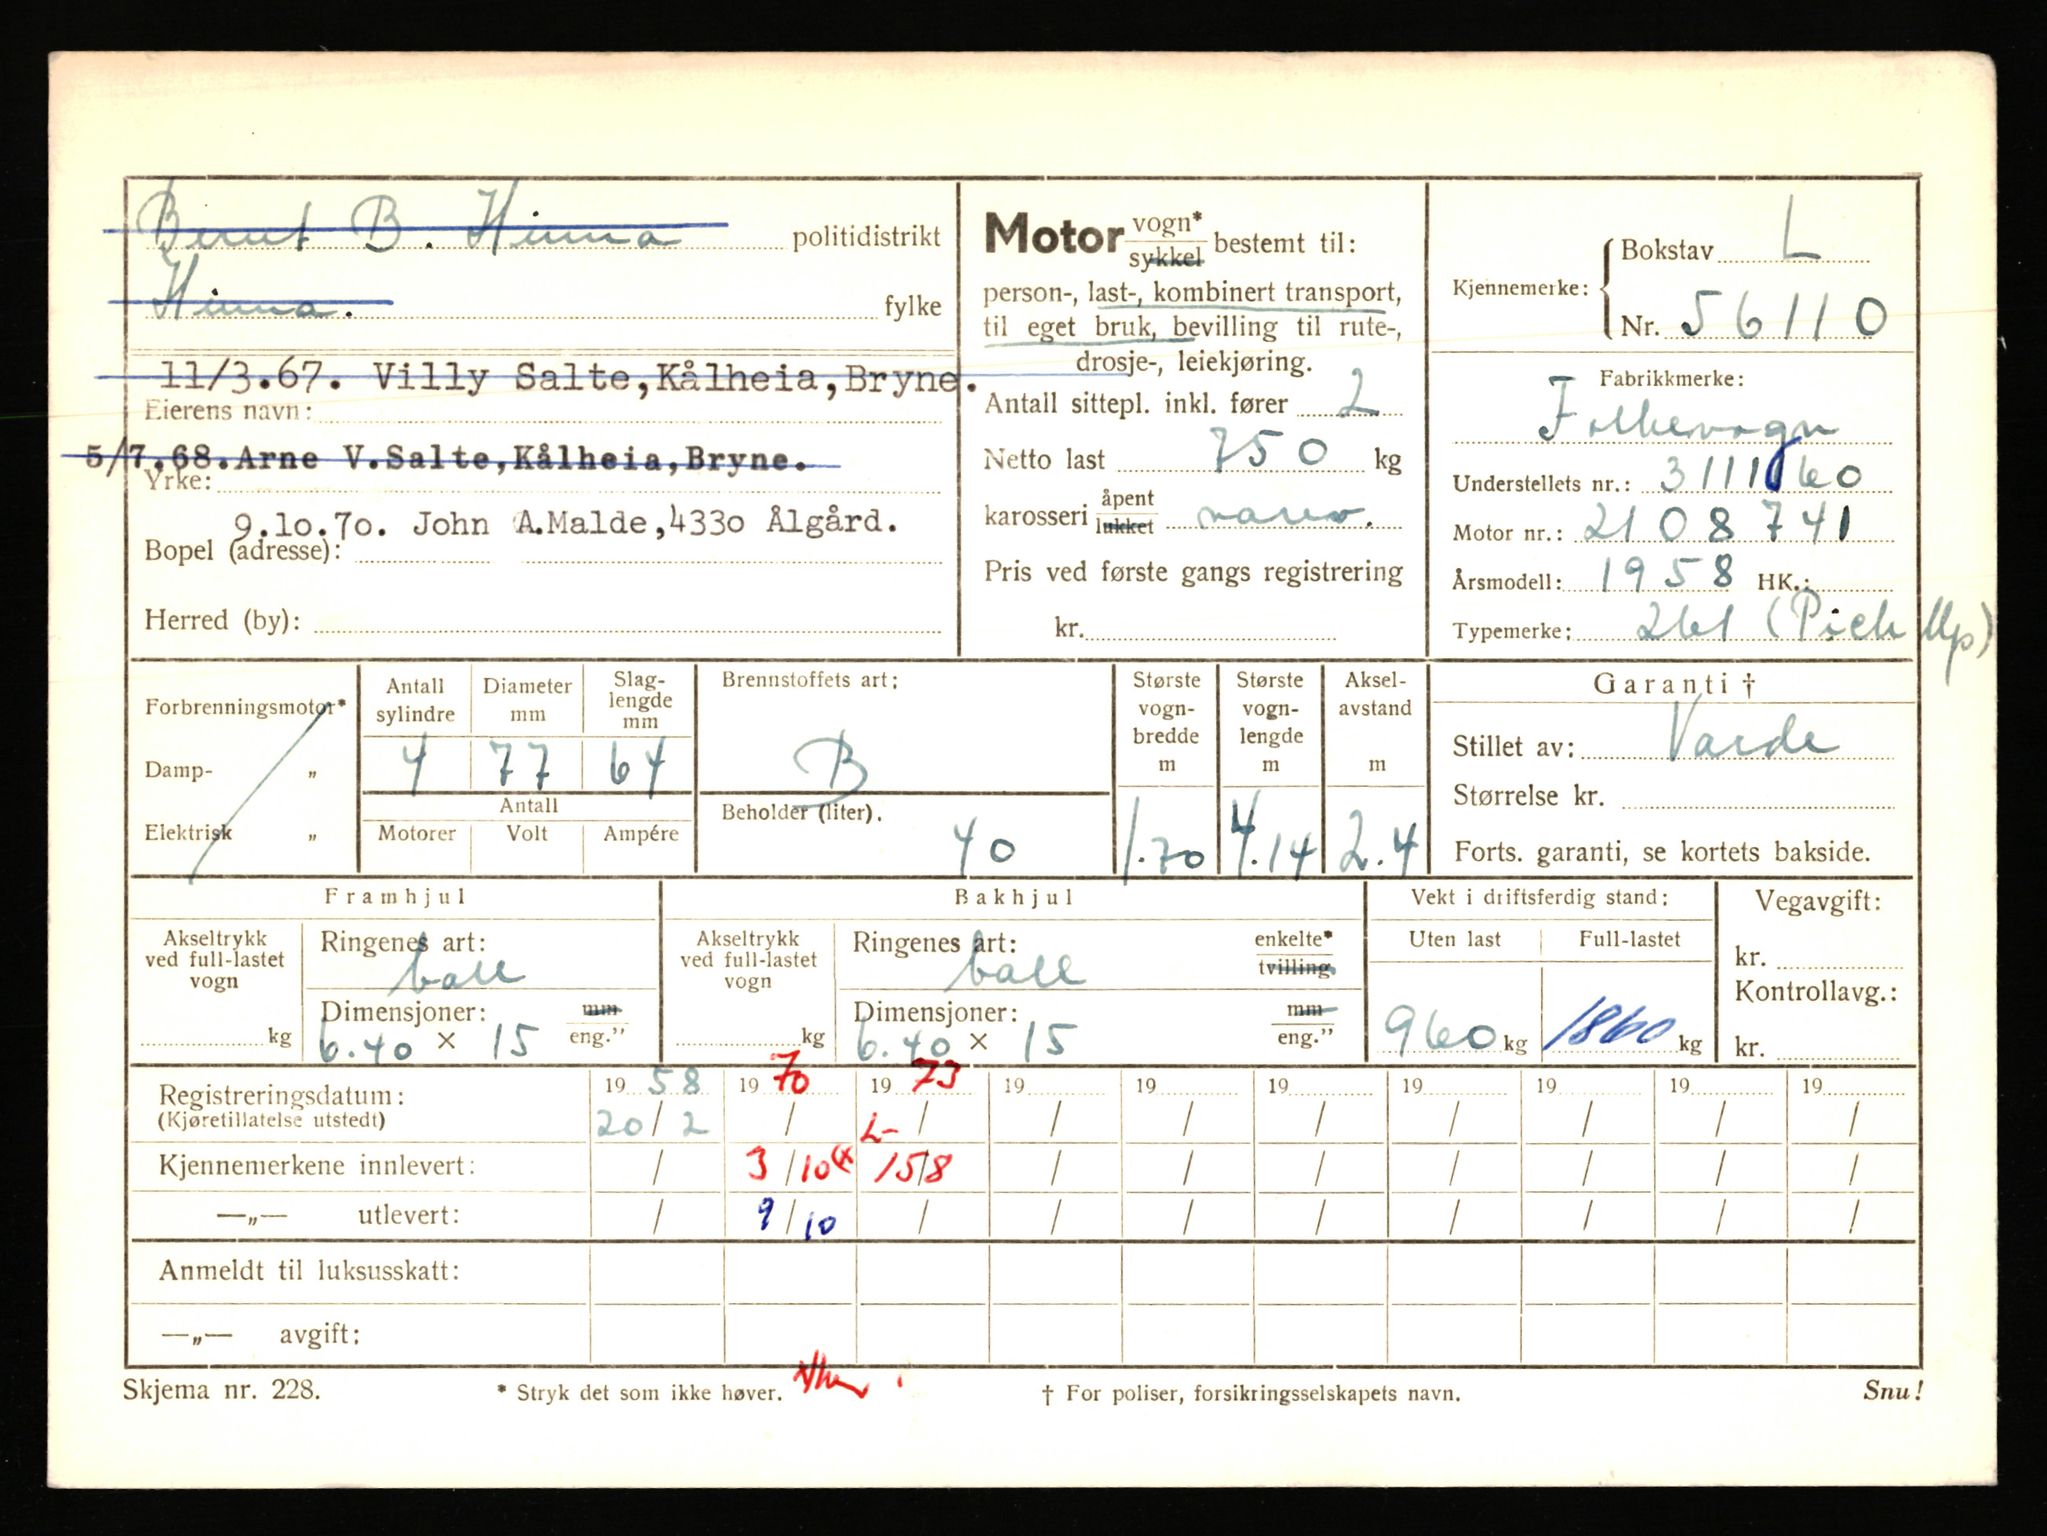 Bernt B. Hinna politidistrikt
Hinna. fylke
11/3.67. Villy Salte,Kålheia,Bryne.
Eierens navn:
5/7.68.Arne V.Salte,Kålheia,Bryne.
Yrke:
9.10.70. John A.Malde,4330 Ålgård.
Bopel (adresse):
Herred (by):
Motor vogn* sykkel bestemt til:
person-, last-, kombinert transport,
til eget bruk, bevilling til rute-,
drosje-, leiekjøring.
Antall sittepl. inkl. fører 2
Netto last 750 kg
karosseri åpent lukket varev.
Pris ved første gangs registrering
kr.
Kjennemerke: Bokstav L
Nr. 56110
Fabrikkmerke:
Folkevogn
Understellets nr.: 3111060
Motor nr.: 2108741
Årsmodell: 1958 HK.:
Typemerke: 261 (Pick Up)
Forbrenningsmotor*
Damp- „
Elektrisk „
Antall sylindre Diameter mm Slag-lengde mm
4 77 64
Antall
Motorer Volt Ampére
Brennstoffets art:
B
Beholder (liter).
40
Største vogn-bredde m
1.70
Største vogn-lengde m
4.14
Aksel-avstand m
2.4
Garanti †
Stillet av: Varde
Størrelse kr.
Forts. garanti, se kortets bakside.
Framhjul
Akseltrykk ved full-lastet vogn
kg
Ringenes art:
ball
Dimensjoner: mm
6.40 × 15 eng.”
Bakhjul
Akseltrykk ved full-lastet vogn
kg
Ringenes art: enkelte*
ball tvilling
Dimensjoner: mm
6.40 × 15 eng.”
Vekt i driftsferdig stand:
Uten last Full-lastet
960 kg 1860 kg
Vegavgift:
kr.
Kontrollavg.:
kr.
Registreringsdatum: 19 58 19 70 19 73 19 19 19 19 19 19 19
(Kjøretillatelse utstedt) 20/2 / L- / / / / / / / /
Kjennemerkene innlevert: / 3/10 (x 15/8 / / / / / / /
—„— utlevert: / 9/10 / / / / / / / /
Anmeldt til luksusskatt:
—„— avgift:
Skjema nr. 228. * Stryk det som ikke høver. † For poliser, forsikringsselskapets navn. Snu!